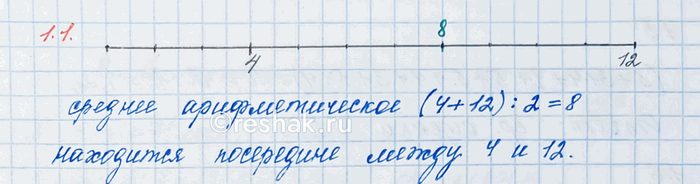 1.1.
8
4 12
среднее арифметическое (4+12):2=8
©reshak.ru
находится посередине между 4 и 12.